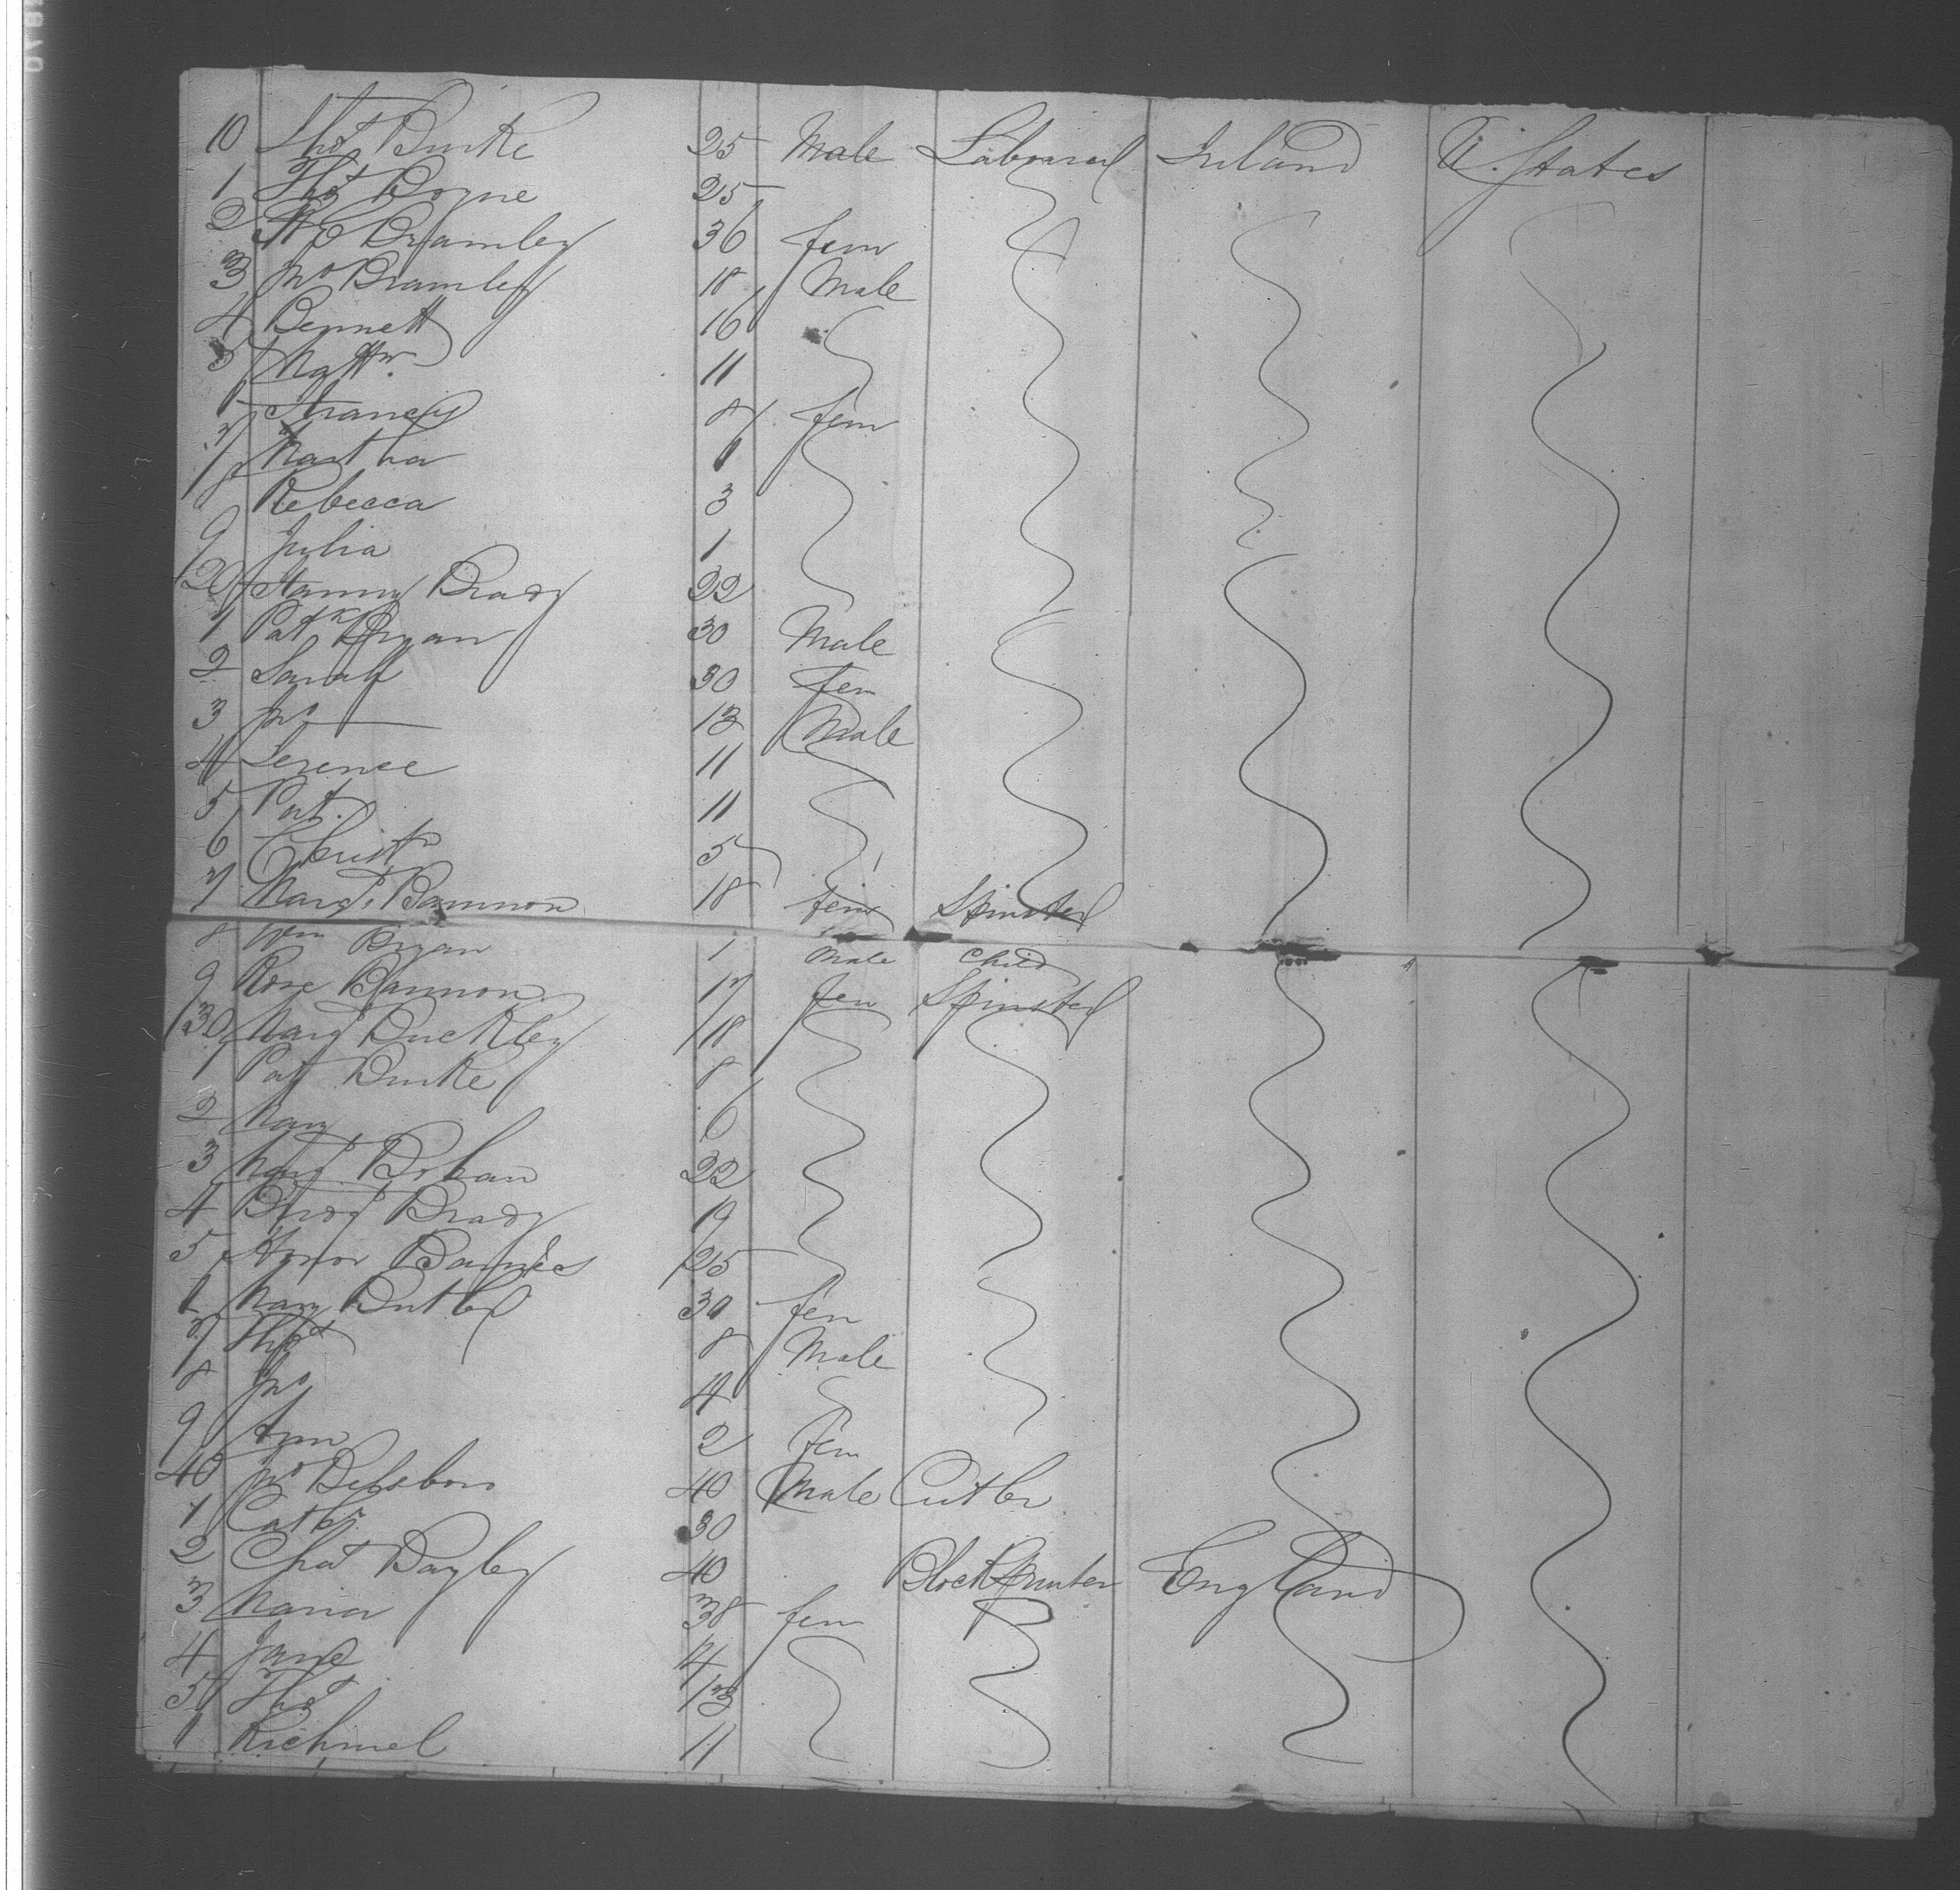 10 Thos Burke 25 Male Labourer Ireland U. States
1 Thos Boyne 25
2 Bramley 36 fem
3 Jno Bramley 18 Male
4 Bennett 16
5 Mattw. 11
6 Francis 8 fem
7 Martha 6
8 Rebecca 3
9 Julia 1
20 Hanny Brady 22
1 Patk Bryan 30 Male
2 Sarah 30 fem
3 Jno 13 Male
4 Terence 11
5 Pat. 11
6 Christr 5
7 Margt Bannon 18 fem Spinster
8 Wm Bryan 1 Male Child
9 Rose Bannon 17 fem Spinster
30 Marg Buckley 18
1 Pat Burke 8
2 Mary 6
3 Margt 22
4 Bridg Brady 19
5 Honor Barnes 25
6 Mary Butler 30 fem
7 Thos 8 Male
8 Jno 4
9 Ann 2 fem
40 Jno 40 Male Cutler
1 Cathr 30
2 Chas Bayley 40 Block Printer England
3 Maria 38 fem
4 Jane 14
5 Thos 13
6 11